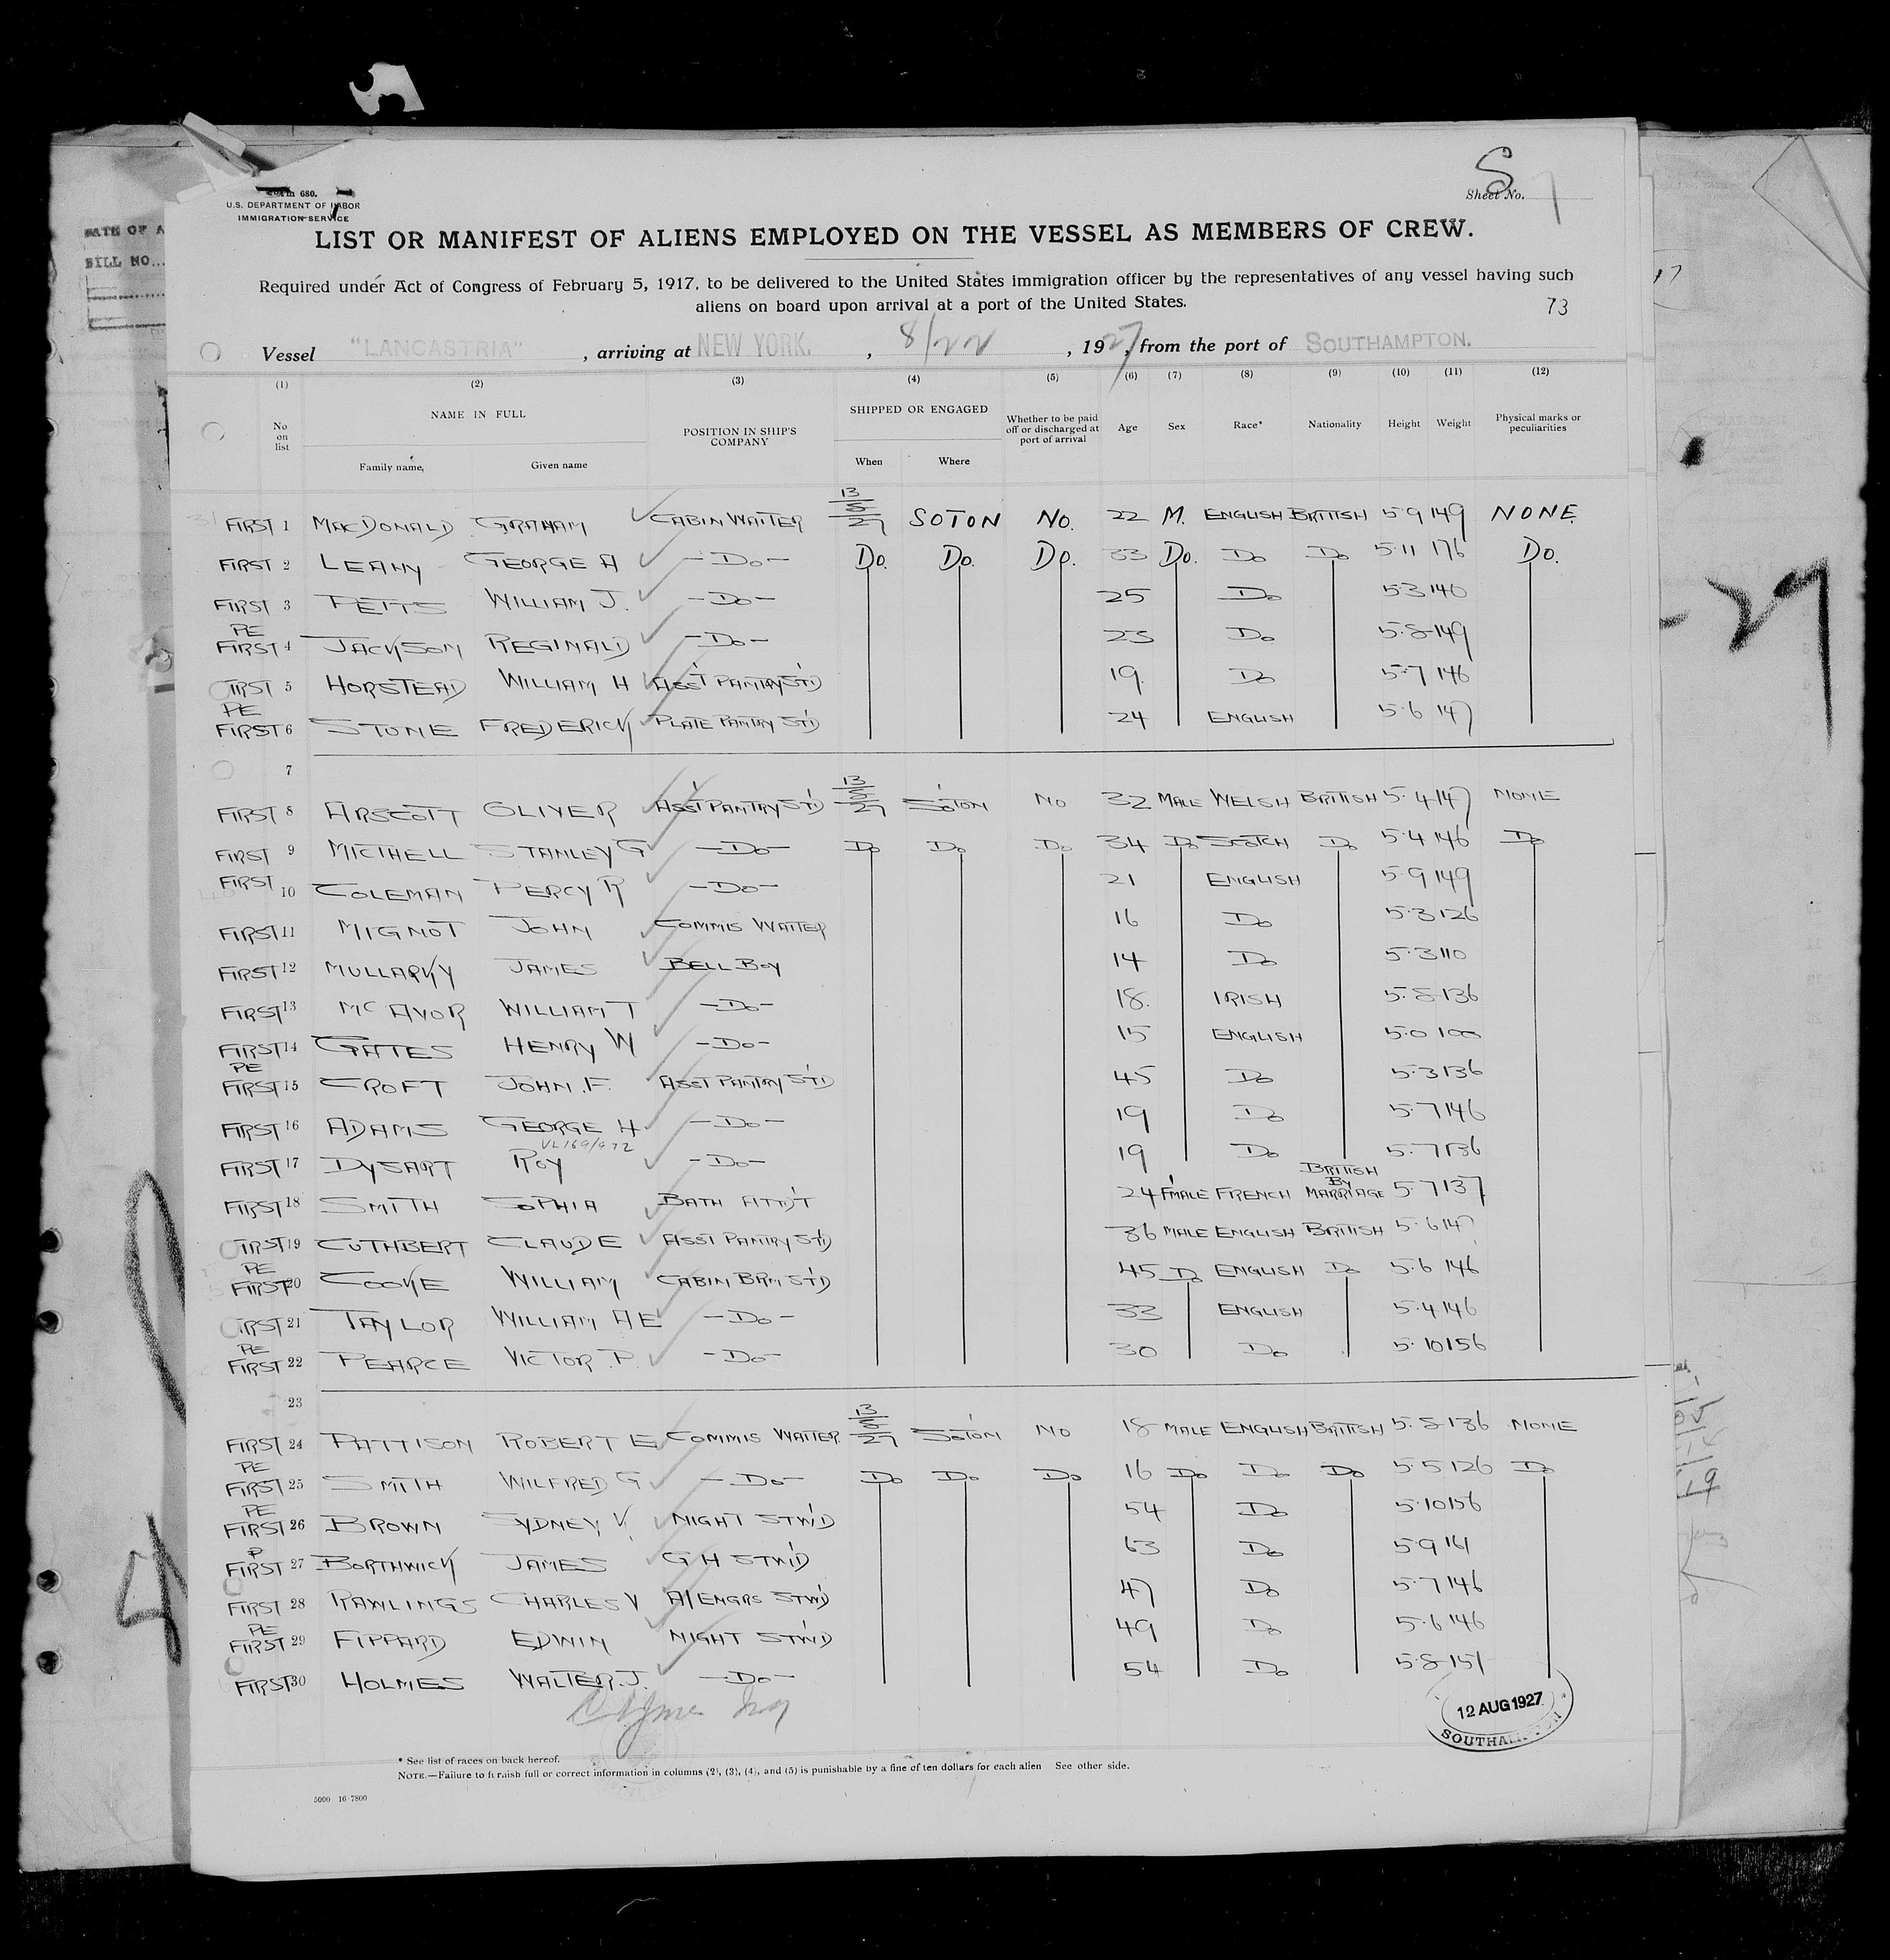 Form 680.
U.S. DEPARTMENT OF LABOR
IMMIGRATION SERVICE
S
Sheet No. 7
LIST OR MANIFEST OF ALIENS EMPLOYED ON THE VESSEL AS MEMBERS OF CREW.
Required under Act of Congress of February 5, 1917, to be delivered to the United States immigration officer by the representatives of any vessel having such
aliens on board upon arrival at a port of the United States.
73
Vessel "LANCASTRIA", arriving at NEW YORK., 8/22, 1927, from the port of SOUTHAMPTON.
(1) (2) (3) (4) (5) (6) (7) (8) (9) (10) (11) (12)
No on list NAME IN FULL Family name, Given name POSITION IN SHIP'S COMPANY SHIPPED OR ENGAGED When Where Whether to be paid off or discharged at port of arrival Age Sex Race* Nationality Height Weight Physical marks or peculiarities
FIRST 1 MACDONALD GRAHAM CABIN WAITER 13/8/27 SOTON NO. 22 M. ENGLISH BRITISH 5·9 149 NONE.
FIRST 2 LEAHY GEORGE A -DO- DO. DO. DO. 33 DO. DO DO 5·11 176 DO.
FIRST 3 PETTS WILLIAM J. -DO- 25 DO 5·3 140
PE
FIRST 4 JACKSON REGINALD -DO- 23 DO 5·8 149
FIRST 5 HORSTEAD WILLIAM H ASS'T PANTRY ST'D 19. DO 5·7 146
PE
FIRST 6 STONE FREDERICK PLATE PANTRY ST'D 24 ENGLISH 5·6 147
7
FIRST 8 ARSCOTT OLIVER ASS'T PANTRY ST'D 13/8/27 SO'TON NO 32 MALE WELSH BRITISH 5·4 147 NONE
FIRST 9 MICTHELL STANLEY G -DO- DO DO DO 34 DO SCOTCH DO 5·4 146 DO
FIRST 10 COLEMAN PERCY R -DO- 21 ENGLISH 5·9 149
FIRST 11 MIGNOT JOHN COMMIS WAITER 16 DO 5·3 126
FIRST 12 MULLARKY JAMES BELL BOY 14 DO 5·3 110
FIRST 13 MC AVOR WILLIAM T -DO- 18. IRISH 5·8 136
FIRST 14 GATES HENRY W -DO- 15 ENGLISH 5·0 100
PE
FIRST 15 CROFT JOHN.F. ASST PANTRY ST'D 45 DO 5·3 136
FIRST 16 ADAMS GEORGE H -DO- 19 DO 5·7 146
VL169/972
FIRST 17 DYSART ROY -DO- 19 DO 5·7 136
FIRST 18 SMITH SOPHIA BATH ATTD'T 24 F'MALE FRENCH BRITISH BY MARRIAGE 5·7 137
FIRST 19 CUTHBERT CLAUDE ASST PANTRY ST'D 36 MALE ENGLISH BRITISH 5·6 147
PE
FIRST 20 COOKE WILLIAM CABIN BRM ST'D 45 DO ENGLISH DO 5·6 146
FIRST 21 TAYLOR WILLIAM AE -DO- 33 ENGLISH 5·4 146
PE
FIRST 22 PEARCE VICTOR .P. -DO- 30 DO 5·10 156
23
FIRST 24 PATTISON ROBERT E COMMIS WAITER 13/8/27 SO'TON NO 18 MALE ENGLISH BRITISH 5·8 136 NONE
PE
FIRST 25 SMITH WILFRED G -DO- DO DO DO 16 DO DO DO 5·5 126 DO
PE
FIRST 26 BROWN SYDNEY V. NIGHT STW'D 54 DO 5·10 156
P
FIRST 27 BORTHWICK JAMES G H STW'D 63 DO 5·9 161
FIRST 28 RAWLINGS CHARLES V A/ENGRS STW'D 47 DO 5·7 146
PE
FIRST 29 FIPPARD EDWIN NIGHT STW'D 49 DO 5·6 146
FIRST 30 HOLMES WALTER.J. -DO- 54 DO 5·8 151
12 AUG 1927
SOUTHAMPTON
* See list of races on back hereof.
NOTE.—Failure to furnish full or correct information in columns (2), (3), (4), and (5) is punishable by a fine of ten dollars for each alien See other side.
5000 16 7800
DATE OF A
BILL NO...
-29